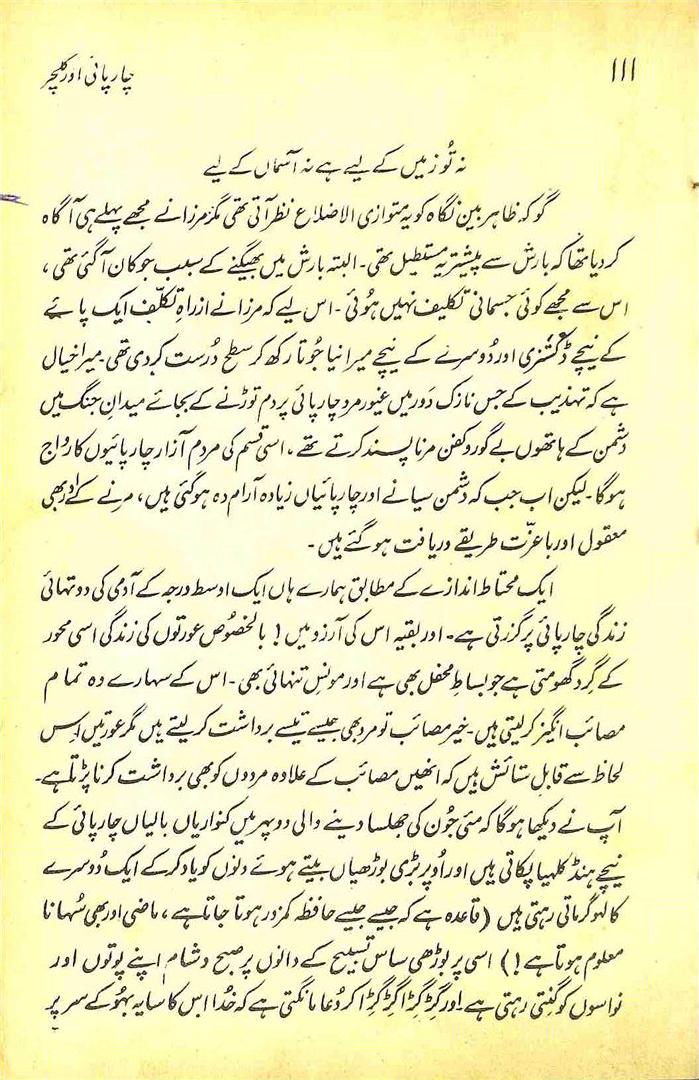 ۱۱۱
چارپائی اور کلچر
نہ تُو زمیں کے لیے ہے نہ آسماں کے لیے
گو کہ ظاہر بین نگاہ کو یہ متوازی الاضلاع نظر آتی تھی مگر مرزا نے مجھے پہلے ہی آگاہ
کر دیا تھا کہ بارش سے پیشتر یہ مستطیل تھی۔ البتہ بارش میں بھیگنے کے سبب جو کان آ گئی تھی،
اس سے مجھے کوئی جسمانی تکلیف نہیں ہُوئی۔ اس لیے کہ مرزا نے ازراہِ تکلّف ایک پائے
کے نیچے ڈکشنری اور دُوسرے کے نیچے میرا نیا جُوتا رکھ کر سطح دُرست کر دی تھی۔ میرا خیال
ہے کہ تہذیب کے جس نازک دَور میں غیور مرد چارپائی پر دم توڑنے کے بجائے میدانِ جنگ میں
دشمن کے ہاتھوں بے گور و کفن مرنا پسند کرتے تھے، اسی قسم کی مردم آزار چارپائیوں کا رواج
ہو گا۔ لیکن اب جب کہ دشمن سیانے اور چارپائیاں زیادہ آرام دہ ہو گئی ہیں، مرنے کے اور بھی
معقول اور باعزّت طریقے دریافت ہو گئے ہیں۔
ایک محتاط اندازے کے مطابق ہمارے ہاں ایک اوسط درجہ کے آدمی کی دو تہائی
زندگی چارپائی پر گزرتی ہے۔ اور بقیہ اس کی آرزو میں! بالخصُوص عورتوں کی زندگی اسی محور
کے گرد گھومتی ہے جو بساطِ محفل بھی ہے اور مونسِ تنہائی بھی۔ اس کے سہارے وہ تمام
مصائب انگیز کر لیتی ہیں۔ خیر مصائب تو مرد بھی جیسے تیسے برداشت کر لیتے ہیں مگر عورتیں اس
لحاظ سے قابلِ ستائش ہیں کہ انھیں مصائب کے علاوہ مردوں کو بھی برداشت کرنا پڑتا ہے۔
آپ نے دیکھا ہو گا کہ مئی جُون کی جھلسا دینے والی دوپہر میں کنواریاں بالیاں چارپائی کے
نیچے ہنڈ کلھیا پکاتی ہیں اور اُوپر بڑی بوڑھیاں بیتے ہوئے دنوں کو یاد کر کے ایک دُوسرے
کا لہو گرماتی رہتی ہیں (قاعدہ ہے کہ جیسے جیسے حافظہ کمزور ہوتا جاتا ہے، ماضی اور بھی سُہانا
معلوم ہوتا ہے!) اسی پر بوڑھی ساس تسبیح کے دانوں پر صبح و شام اپنے پوتوں اور
نواسوں کو گنتی رہتی ہے اور گِڑگِڑا گِڑگِڑا کر دُعا مانگتی ہے کہ خُدا اس کا سایہ بہُو کے سر پر